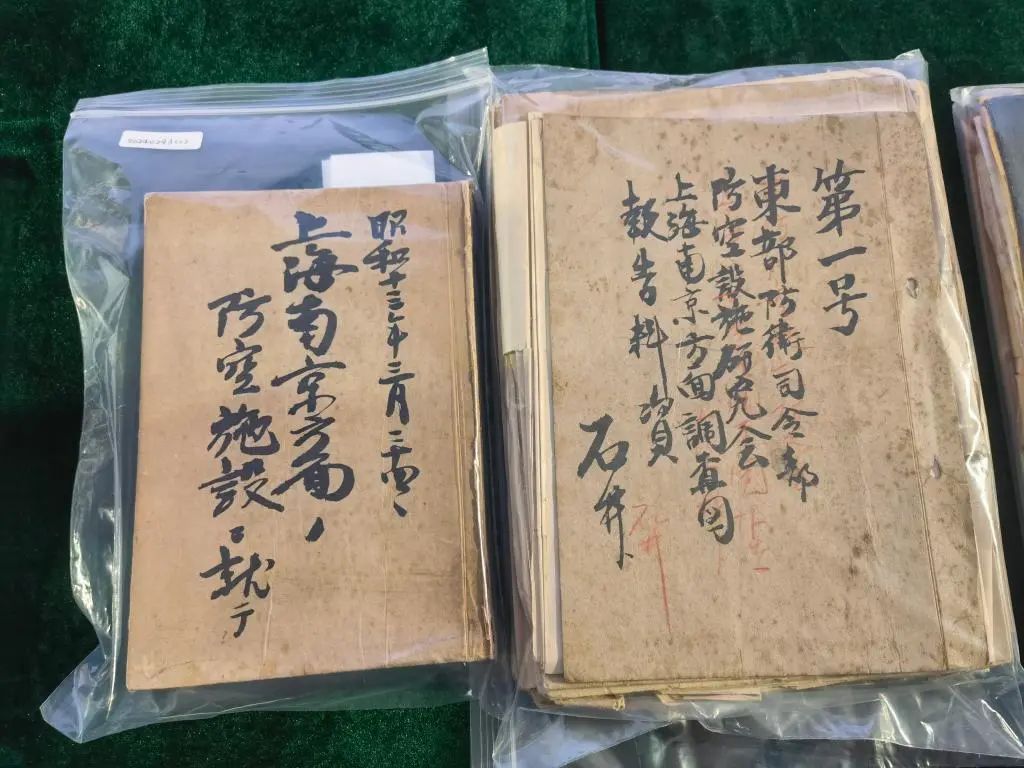 昭和十三年三月二十四、
上海南京方面ノ
防空施設ニ就テ
第一号
東部防衛司令部
防空設施研究会
上海南京方面調査団
報告料資
石井
石井